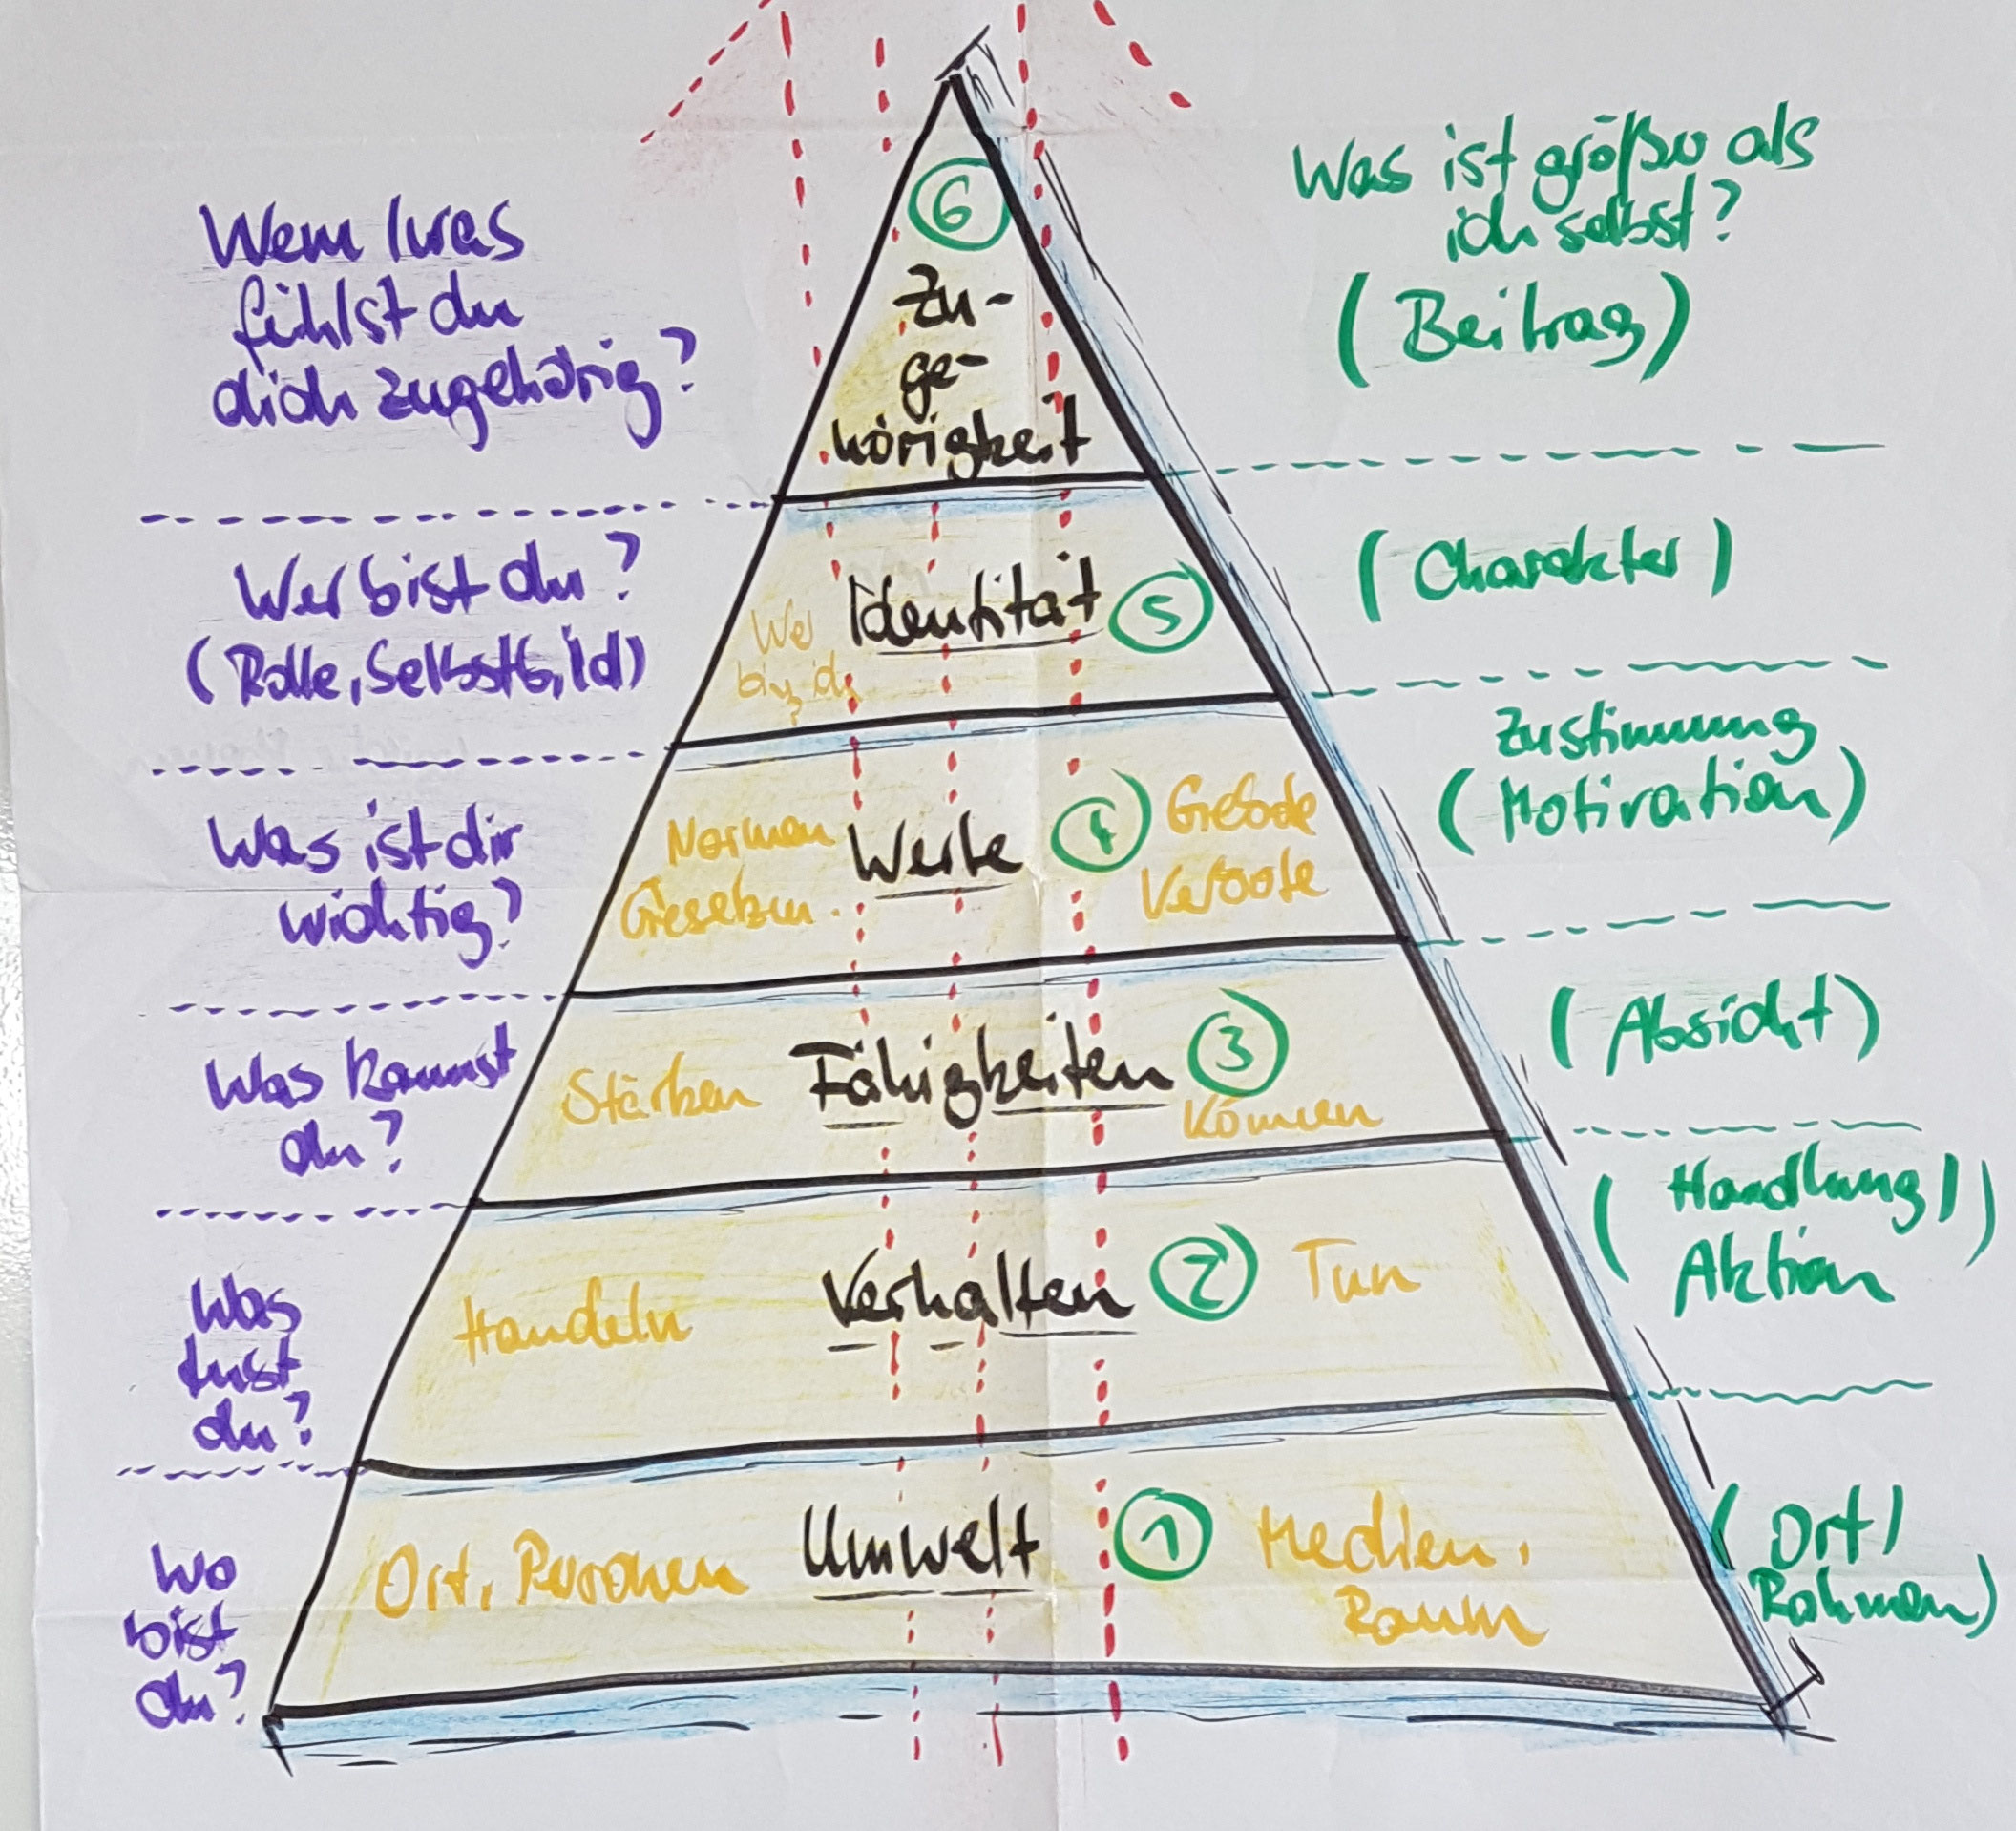 Wem/was
fühlst du
dich zugehörig?
6
Zu-
ge-
hörigkeit
Was ist größer als
ich selbst?
(Beitrag)
Wer bist du?
(Rolle, Selbstbild)
Wer
bin ich
?
Identität
5
(Charakter)
Was ist dir
wichtig?
Normen
Gesetze
Werte
4
Gebote
Verbote
Zustimmung
(Motivation)
Was kannst
du?
Stärken
Fähigkeiten
3
Können
(Absicht)
Was
tust
du?
Handeln
Verhalten
2
Tun
(Handlung/)
Aktion
Wo
bist
du?
Ort, Personen
Umwelt
1
Medien,
Raum
(Ort/
Rahmen)